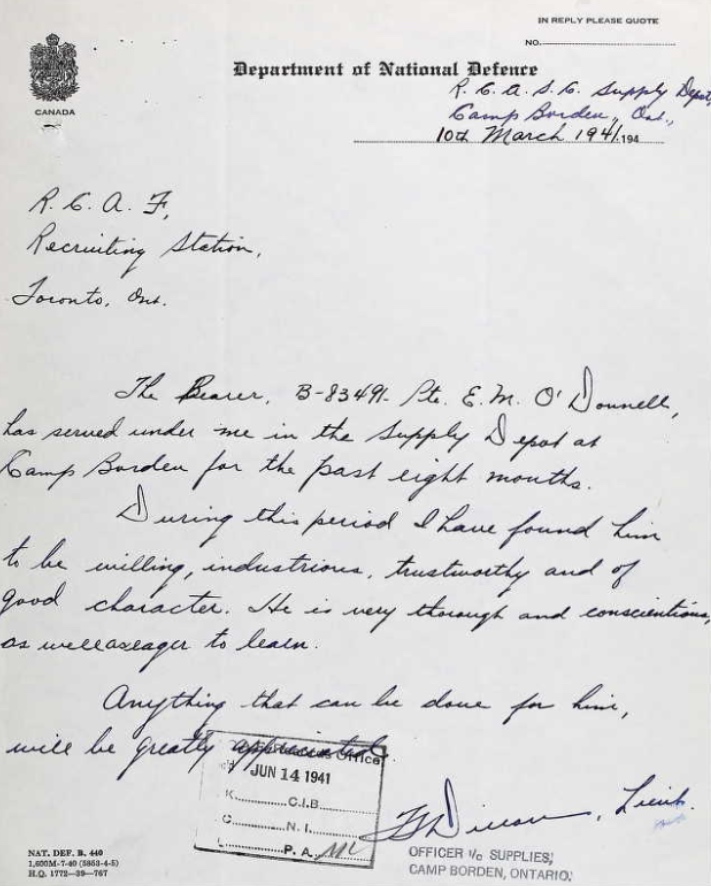 IN REPLY PLEASE QUOTE
NO.
Department of National Defence
CANADA
R. C. A. S. C. Supply Depot,
Camp Borden, Ont.,
10th March 1941. 194
R. C. A. F,
Recruiting Station,
Toronto, Ont.
The Bearer, B-83491- Pte. E. M. O'Donnell,
has served under me in the Supply Depot at
Camp Borden for the past eight months.
During this period I have found him
to be willing, industrious, trustworthy and of
good character. He is very thorough and conscientious,
as well as eager to learn.
Anything that can be done for him,
will be greatly appreciated.
Office
JUN 14 1941
K. C.I.B.
C. N. I.
P. A.
Lieut.
OFFICER I/C SUPPLIES,
CAMP BORDEN, ONTARIO.
NAT. DEF. B. 440
1,600M-7-40 (5853-4-5)
H.Q. 1772-39-767